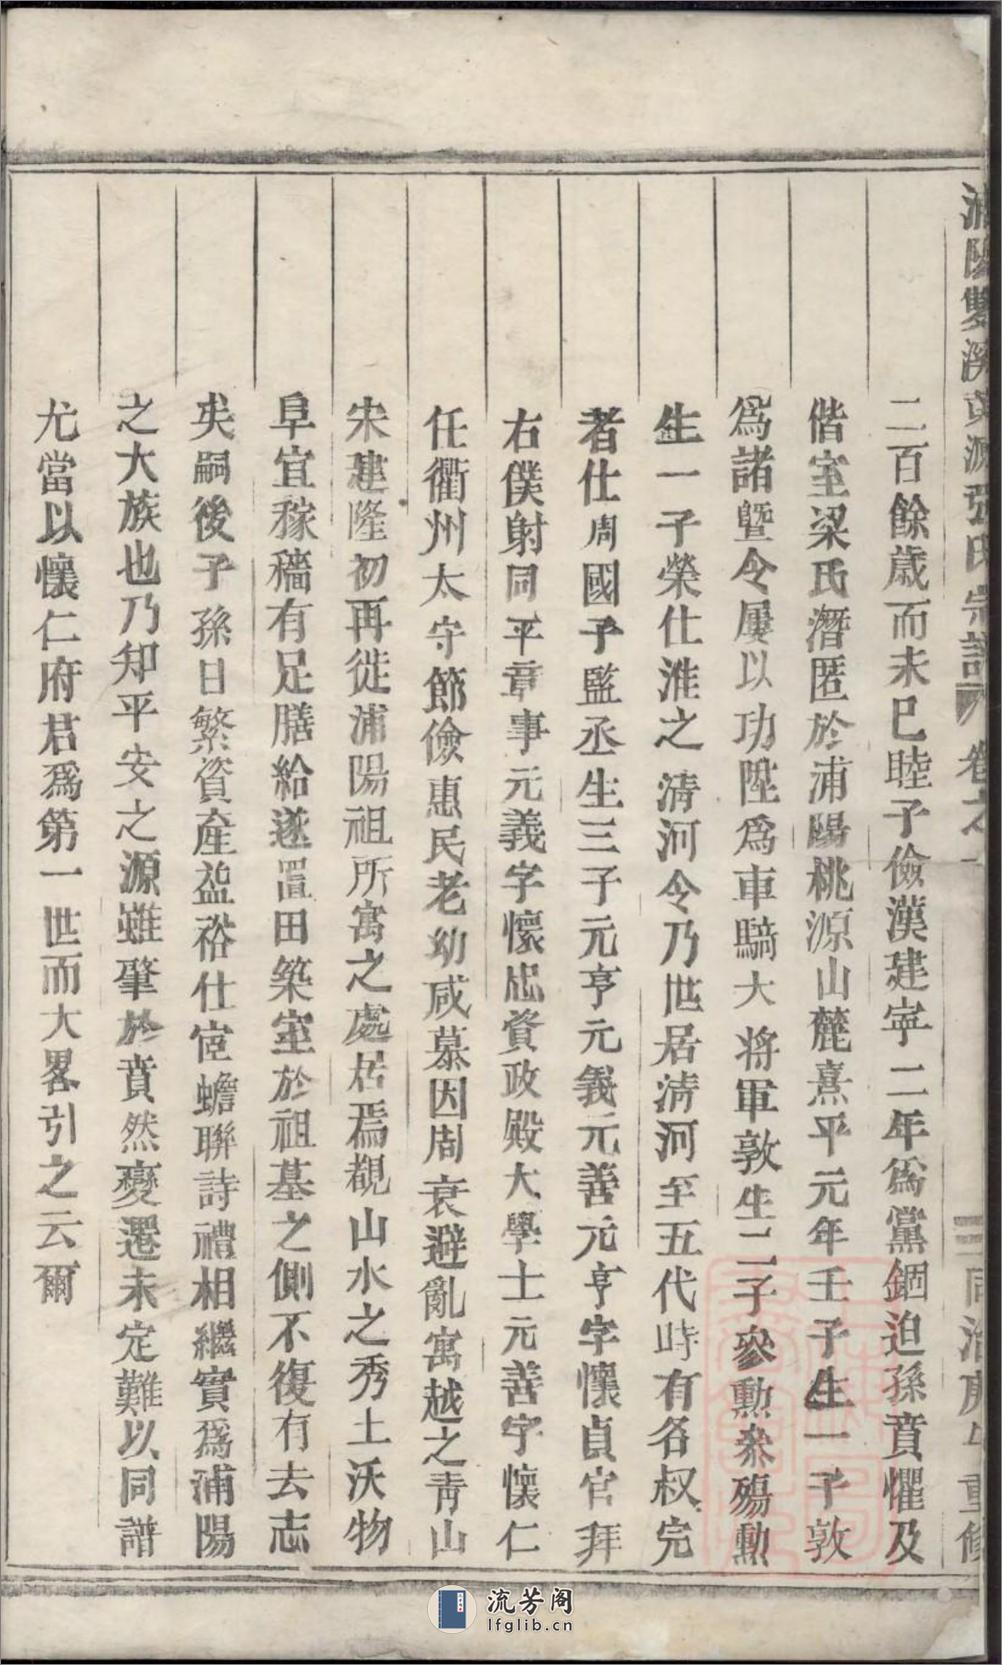 浦陽雙溪東源張氏宗譜 卷之一 同治庚午重修
二百餘歲而未已睦子儉漢建寧二年爲黨錮迫孫賁懼及
偕室梁氏潛匿於浦陽桃源山麓熹平元年壬子生一子敦
爲諸暨令屢以功陞爲車騎大將軍敦生二子參勳參殤勳
生一子榮仕淮之清河令乃世居清河至五代時有名权完
者仕周國子監丞生三子元亨元義元善元亨字懷貞官拜
右僕射同平章事元義字懷忠資政殿大學士元善字懷仁
任衢州太守節儉惠民老幼咸慕因周衰避亂寓越之青山
宋建隆初再徙浦陽祖所寓之處居焉觀山水之秀土沃物
阜宜稼穡有足膳給遂置田築室於祖墓之側不復有去志
矣嗣後子孫日繁資產盈裕仕宦蟾聯詩禮相繼實爲浦陽
之大族也乃知平安之源雖肇於賁然變遷未定難以同譜
尤當以懷仁府君爲第一世而大畧引之云爾
流芳阁
lfglib.cn